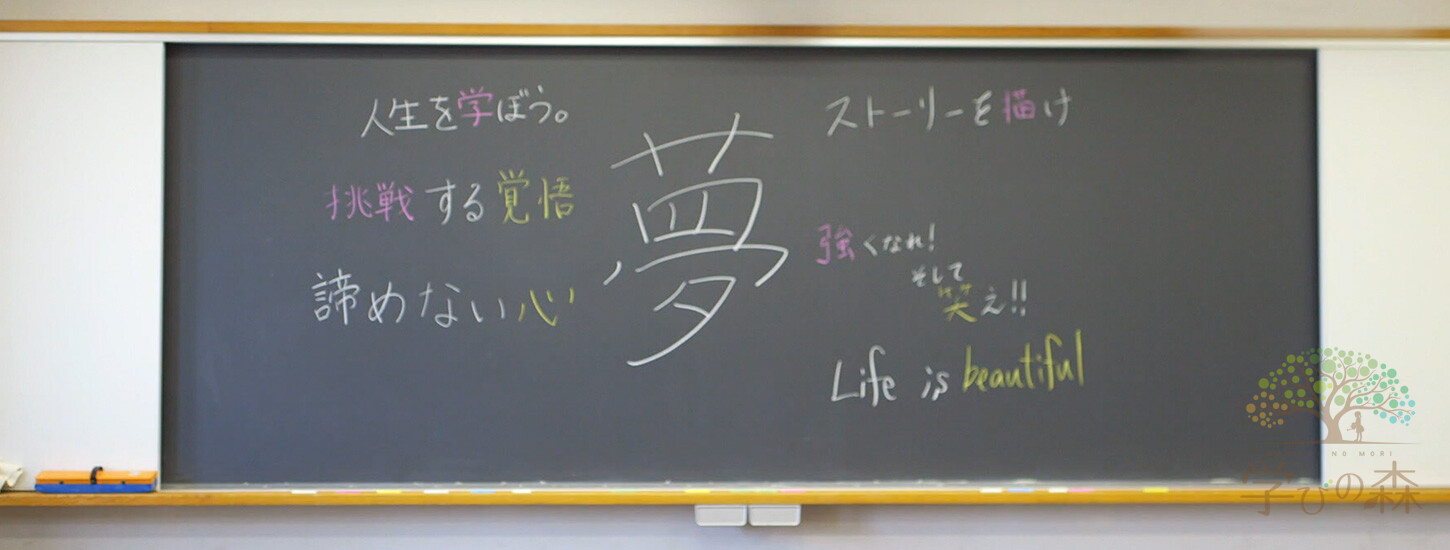 人生を学ぼう。
挑戦する覚悟
諦めない心
夢
ストーリーを描け
強くなれ!
そして
笑え!!
Life is beautiful
NO MORI
学びの森